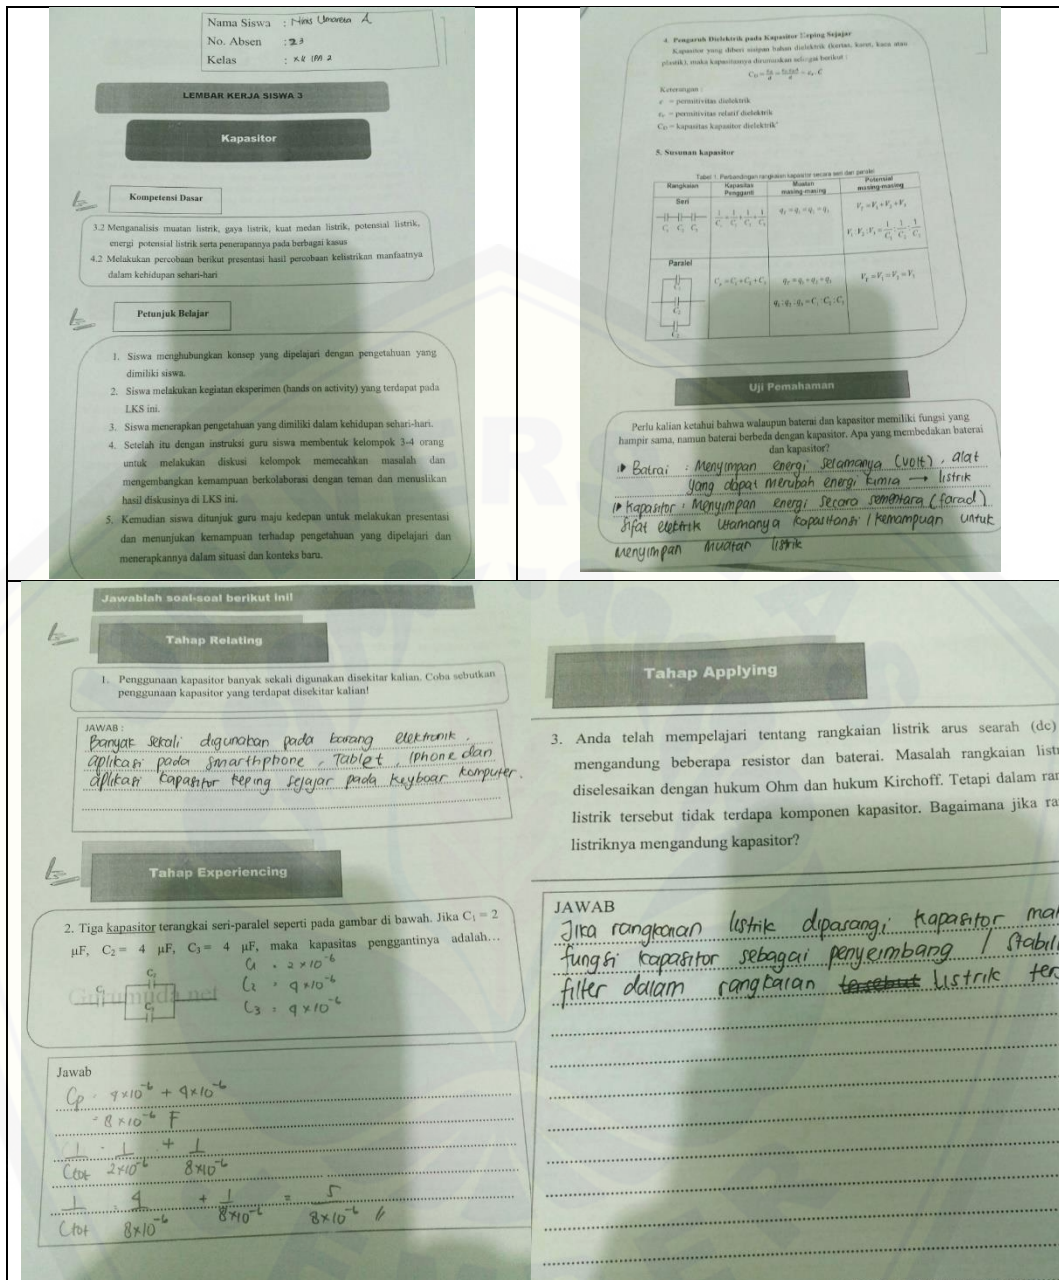 Nama Siswa : Umareta A
No. Absen : 23
Kelas : XII IPA 2
LEMBAR KERJA SISWA 3
Kapasitor
Kompetensi Dasar
3.2 Menganalisis muatan listrik, gaya listrik, kuat medan listrik, potensial listrik,
energi potensial listrik serta penerapannya pada berbagai kasus
4.2 Melakukan percobaan berikut presentasi hasil percobaan kelistrikan manfaatnya
dalam kehidupan sehari-hari
Petunjuk Belajar
1. Siswa menghubungkan konsep yang dipelajari dengan pengetahuan yang
dimiliki siswa.
2. Siswa melakukan kegiatan eksperimen (hands on activity) yang terdapat pada
LKS ini.
3. Siswa menerapkan pengetahuan yang dimiliki dalam kehidupan sehari-hari.
4. Setelah itu dengan instruksi guru siswa membentuk kelompok 3-4 orang
untuk melakukan diskusi kelompok memecahkan masalah dan
mengembangkan kemampuan berkolaborasi dengan teman dan menuslikan
hasil diskusinya di LKS ini.
5. Kemudian siswa ditunjuk guru maju kedepan untuk melakukan presentasi
dan menunjukan kemampuan terhadap pengetahuan yang dipelajari dan
menerapkannya dalam situasi dan konteks baru.
4. Pengaruh Dielektrik pada Kapasitor Keping Sejajar
Kapasitor yang diberi sisipan bahan dielektrik (kertas, karet, kaca atau
plastik), maka kapasitasnya dirumuskan sebagai berikut :
Keterangan :
ε = permitivitas dielektrik
εr = permitivitas relatif dielektrik
CD = kapasitas kapasitor dielektrik
5. Susunan kapasitor
Tabel 1. Perbandingan rangkaian kapasitor secara seri dan paralel
Rangkaian Kapasitas Pengganti Muatan masing-masing Potensial masing-masing
Seri
C1 C2 C3
1/Cs = 1/C1 + 1/C2 + 1/C3
qT = q1 = q2 = q3
VT = V1 + V2 + V3
V1 : V2 : V3 = 1/C1 : 1/C2 : 1/C3
Paralel
C1
C2
C3
Cp = C1 + C2 + C3
qT = q1 + q2 + q3
q1 : q2 : q3 = C1 : C2 : C3
VT = V1 = V2 = V3
Uji Pemahaman
Perlu kalian ketahui bahwa walaupun baterai dan kapasitor memiliki fungsi yang
hampir sama, namun baterai berbeda dengan kapasitor. Apa yang membedakan baterai
dan kapasitor?
Batrai : Menyimpan energi selamanya (volt), alat
yang dapat merubah energi kimia → listrik
Kapasitor : Menyimpan energi secara sementara (farad)
Sifat elektrik utamanya kapasitansi / kemampuan untuk
menyimpan muatan listrik
Jawablah soal-soal berikut ini!
Tahap Relating
1. Penggunaan kapasitor banyak sekali digunakan disekitar kalian. Coba sebutkan
penggunaan kapasitor yang terdapat disekitar kalian!
JAWAB :
Banyak sekali digunakan pada barang elektronik.
aplikasi pada smarthphone, Tablet, Iphone dan
aplikasi kapasitor keping sejajar pada keyboar komputer.
Tahap Experiencing
2. Tiga kapasitor terangkai seri-paralel seperti pada gambar di bawah. Jika C1 = 2
μF, C2 = 4 μF, C3 = 4 μF, maka kapasitas penggantinya adalah...
C1 = 2×10⁻⁶
C2 = 4×10⁻⁶
C3 = 4×10⁻⁶
Gurumuda.net
Jawab
Cp = 4×10⁻⁶ + 4×10⁻⁶
= 8×10⁻⁶ F
1/Ctot = 1/2×10⁻⁶ + 1/8×10⁻⁶
1/Ctot = 4/8×10⁻⁶ + 1/8×10⁻⁶ = 5/8×10⁻⁶ //
Tahap Applying
3. Anda telah mempelajari tentang rangkaian listrik arus searah (dc)
mengandung beberapa resistor dan baterai. Masalah rangkaian list
diselesaikan dengan hukum Ohm dan hukum Kirchoff. Tetapi dalam ra
listrik tersebut tidak terdapa komponen kapasitor. Bagaimana jika ra
listriknya mengandung kapasitor?
JAWAB
Jika rangkaian listrik dipasangi kapasitor ma
fungsi kapasitor sebagai penyeimbang / Stabil
filter dalam rangkaian tersebut listrik ter